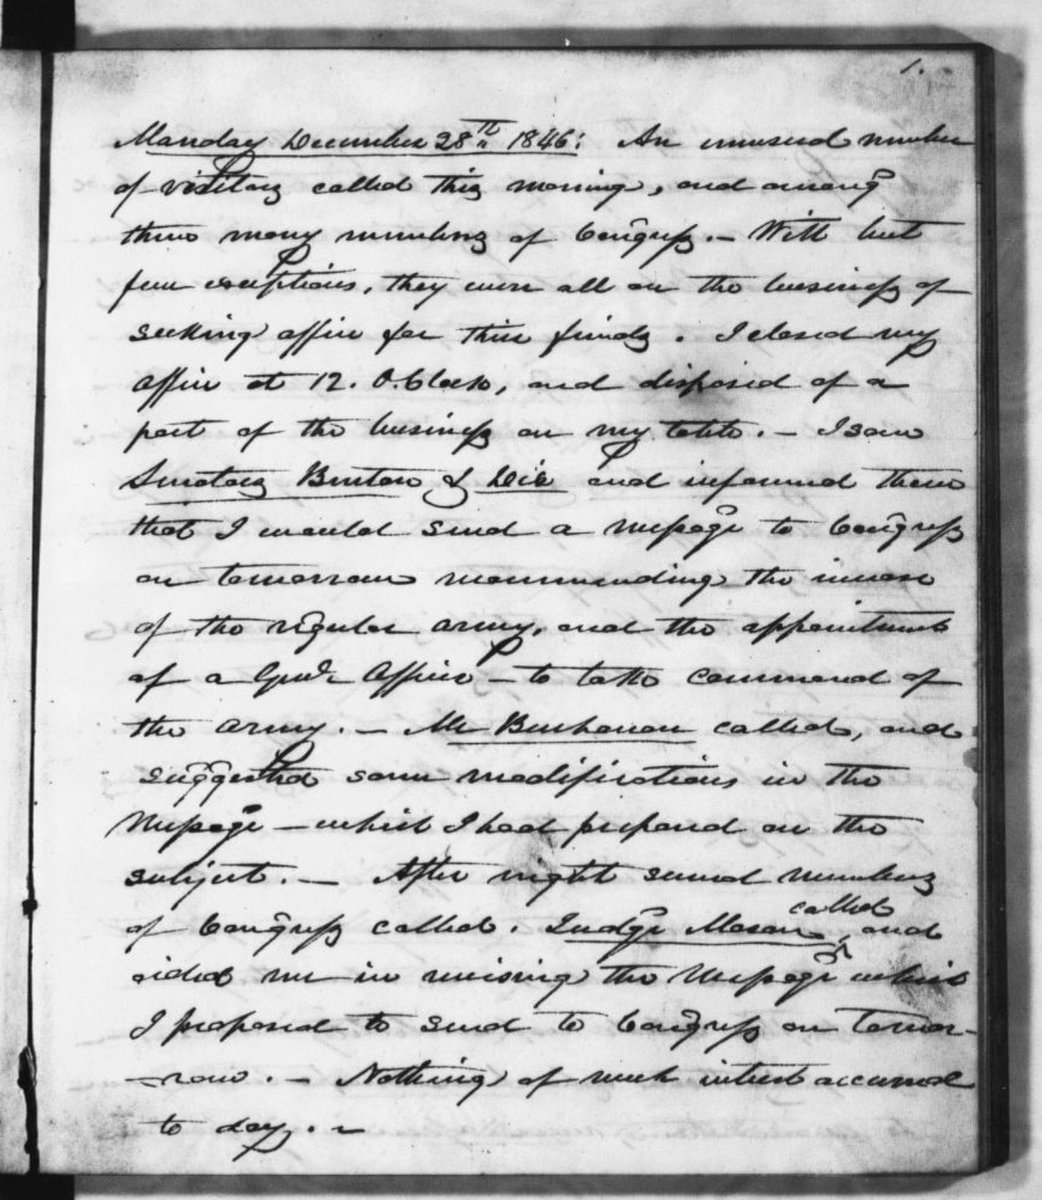 1.
Monday December 28th 1846: An unusual number
of visitors called this morning, and among
them many members of Congress. – With but
few exceptions, they were all on the business of
seeking office for their friends. I closed my
office at 12. O.Clock, and disposed of a
part of the business on my table. – I saw
Senators Benton & Dix and informed them
that I would send a message to Congress
on tomorrow recommending the increase
of the regular army, and the appointment
of a Genl. Officer – to take command of
the army. – Mr Buchanan called, and
suggested some modifications in the
Message – which I had prepared on the
subject. – After night several members
called
of Congress called. Judge Mason, and
aided me in revising the Message which
I proposed to send to Congress on tomor-
-row. – Nothing of much interest occurred
to day. –